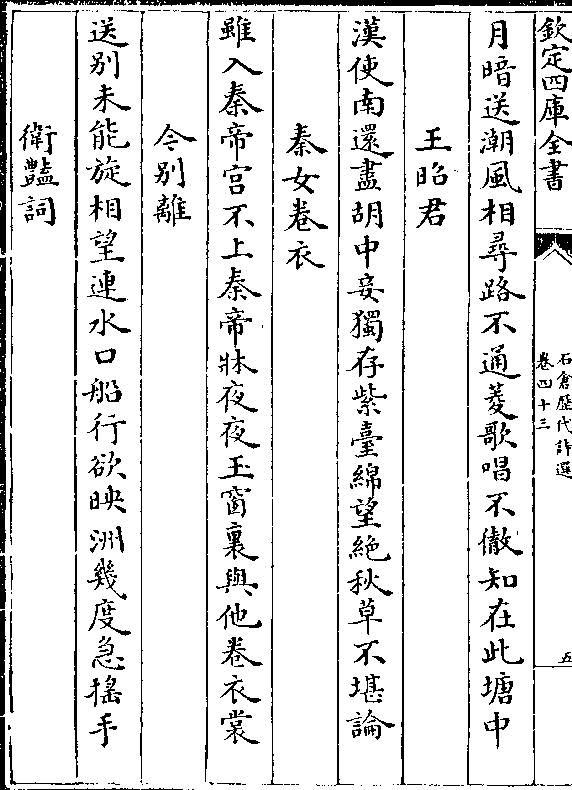 欽定四庫全書
石倉歴代詩選
卷四十三
五
月暗送潮風相尋路不通菱歌唱不徹知在此塘中
王昭君
漢使南還盡胡中妾獨存紫臺綿望絶秋草不堪論
秦女卷衣
雖入秦帝宫不上秦帝牀夜夜玉窗裏與他卷衣裳
今别離
送别未能旋相望連水口船行欲映洲幾度急摇手
衛豔詞